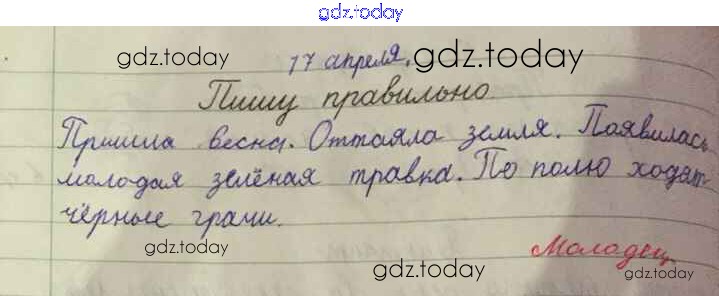 gdz.today
gdz.today
17 апреля.
gdz.today
Пишу правильно
Пришла весна. Оттаяла земля. Появилась
молодая зелёная травка. По полю ходят
чёрные грачи.
gdz.today
Молодец
gdz.today
gdz.today